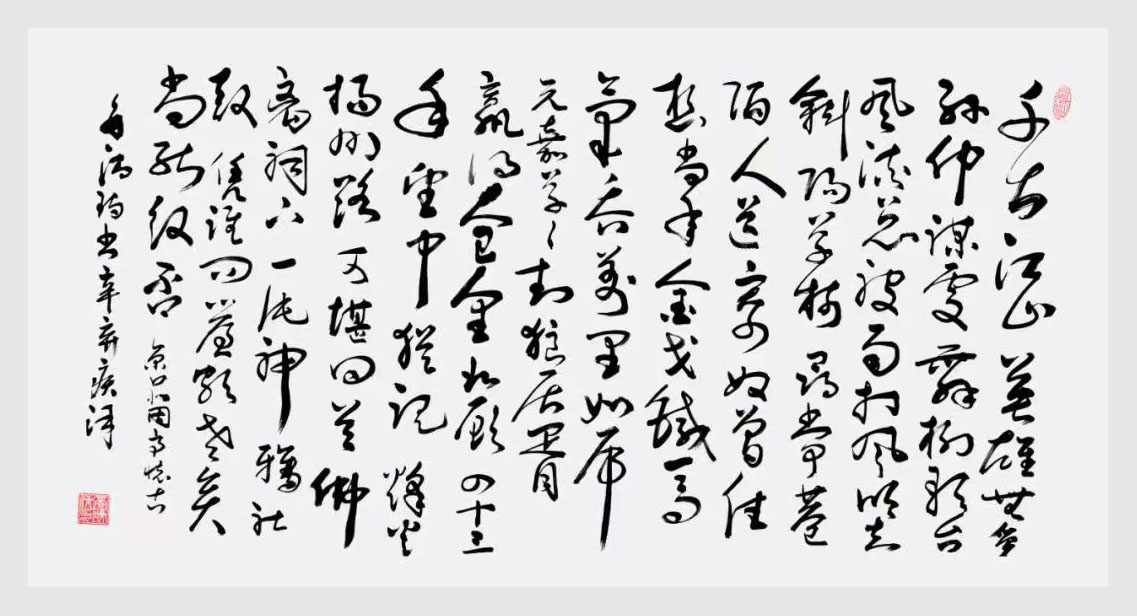 千古江山英雄無覓
孙仲谋处舞榭歌台
風流总被雨打風吹去
斜阳草树尋常巷
陌人道寄奴曾住
想当年金戈鐵馬
氣吞萬里如虎
元嘉草々封狼居胥
赢得仓皇北顾四十三
年望中猶记烽火
揚州路可堪回首佛
狸祠下一片神鴉社
鼓凭谁问廉颇老矣
尚能饭否 京口北固亭怀古
书辛弃疾词